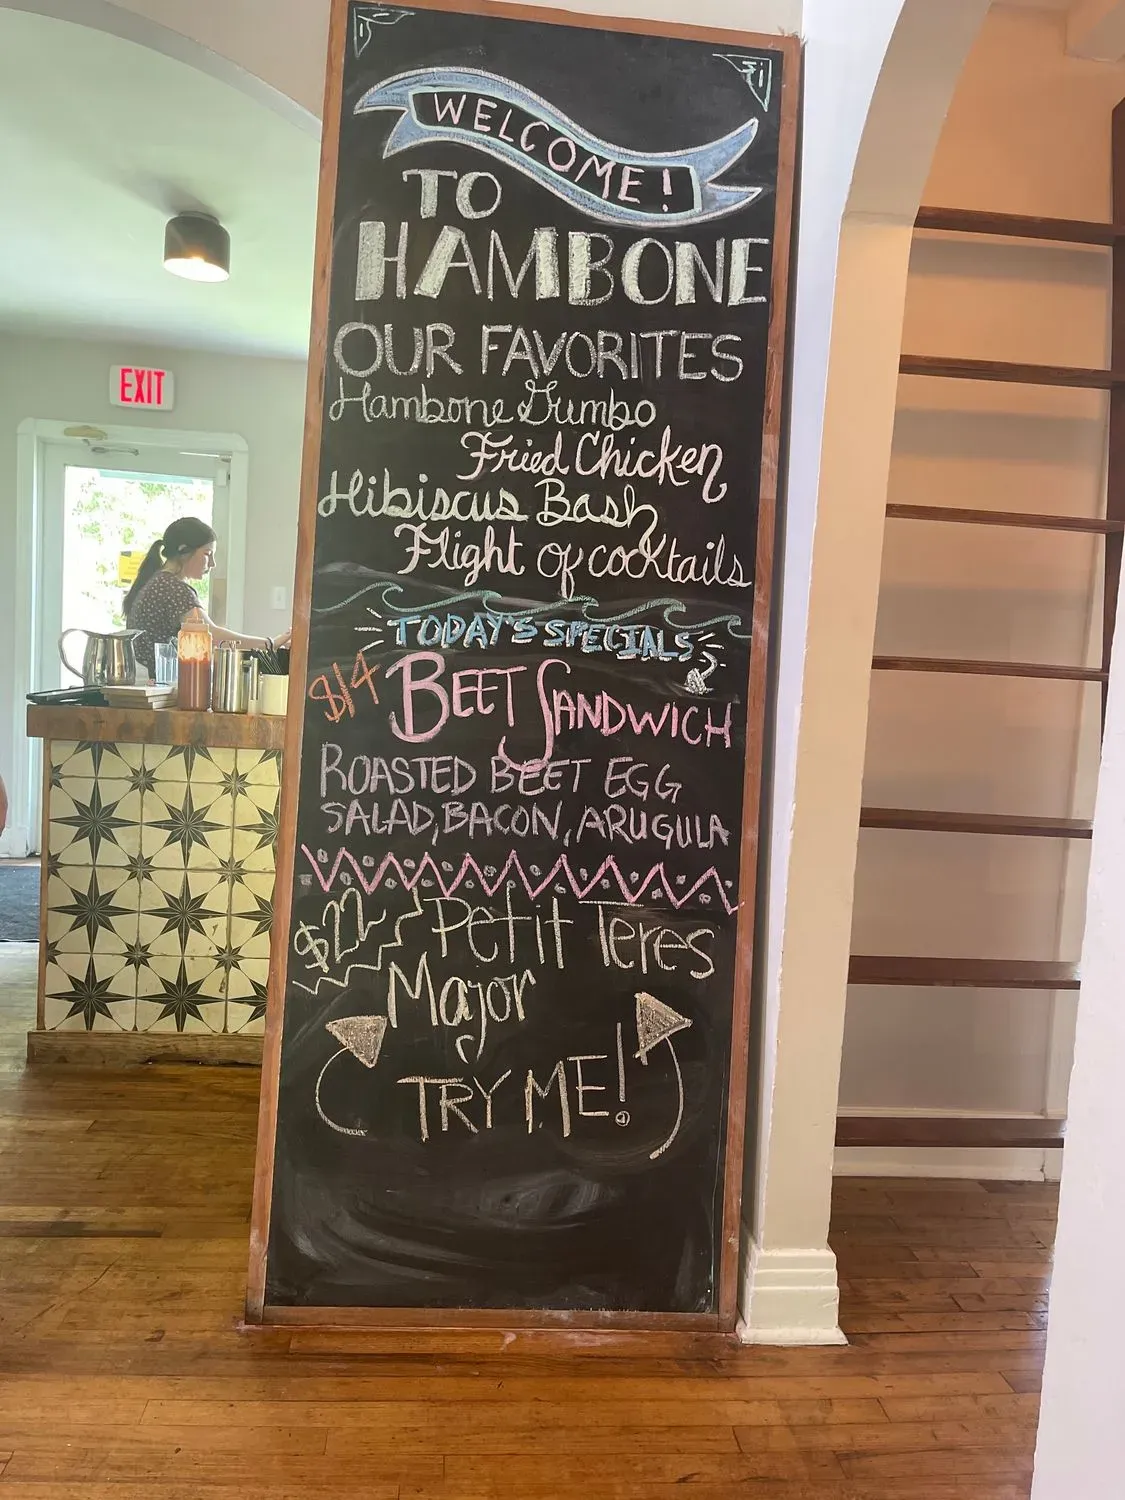 WELCOME!
TO
HAMBONE
OUR FAVORITES
Hambone Gumbo
Fried Chicken
Hibiscus Bash
Flight of cocktails
TODAY'S SPECIALS
$14 BEET SANDWICH
ROASTED BEET EGG
SALAD, BACON, ARUGULA
$22 Petit Teres
Major
TRY ME!
EXIT